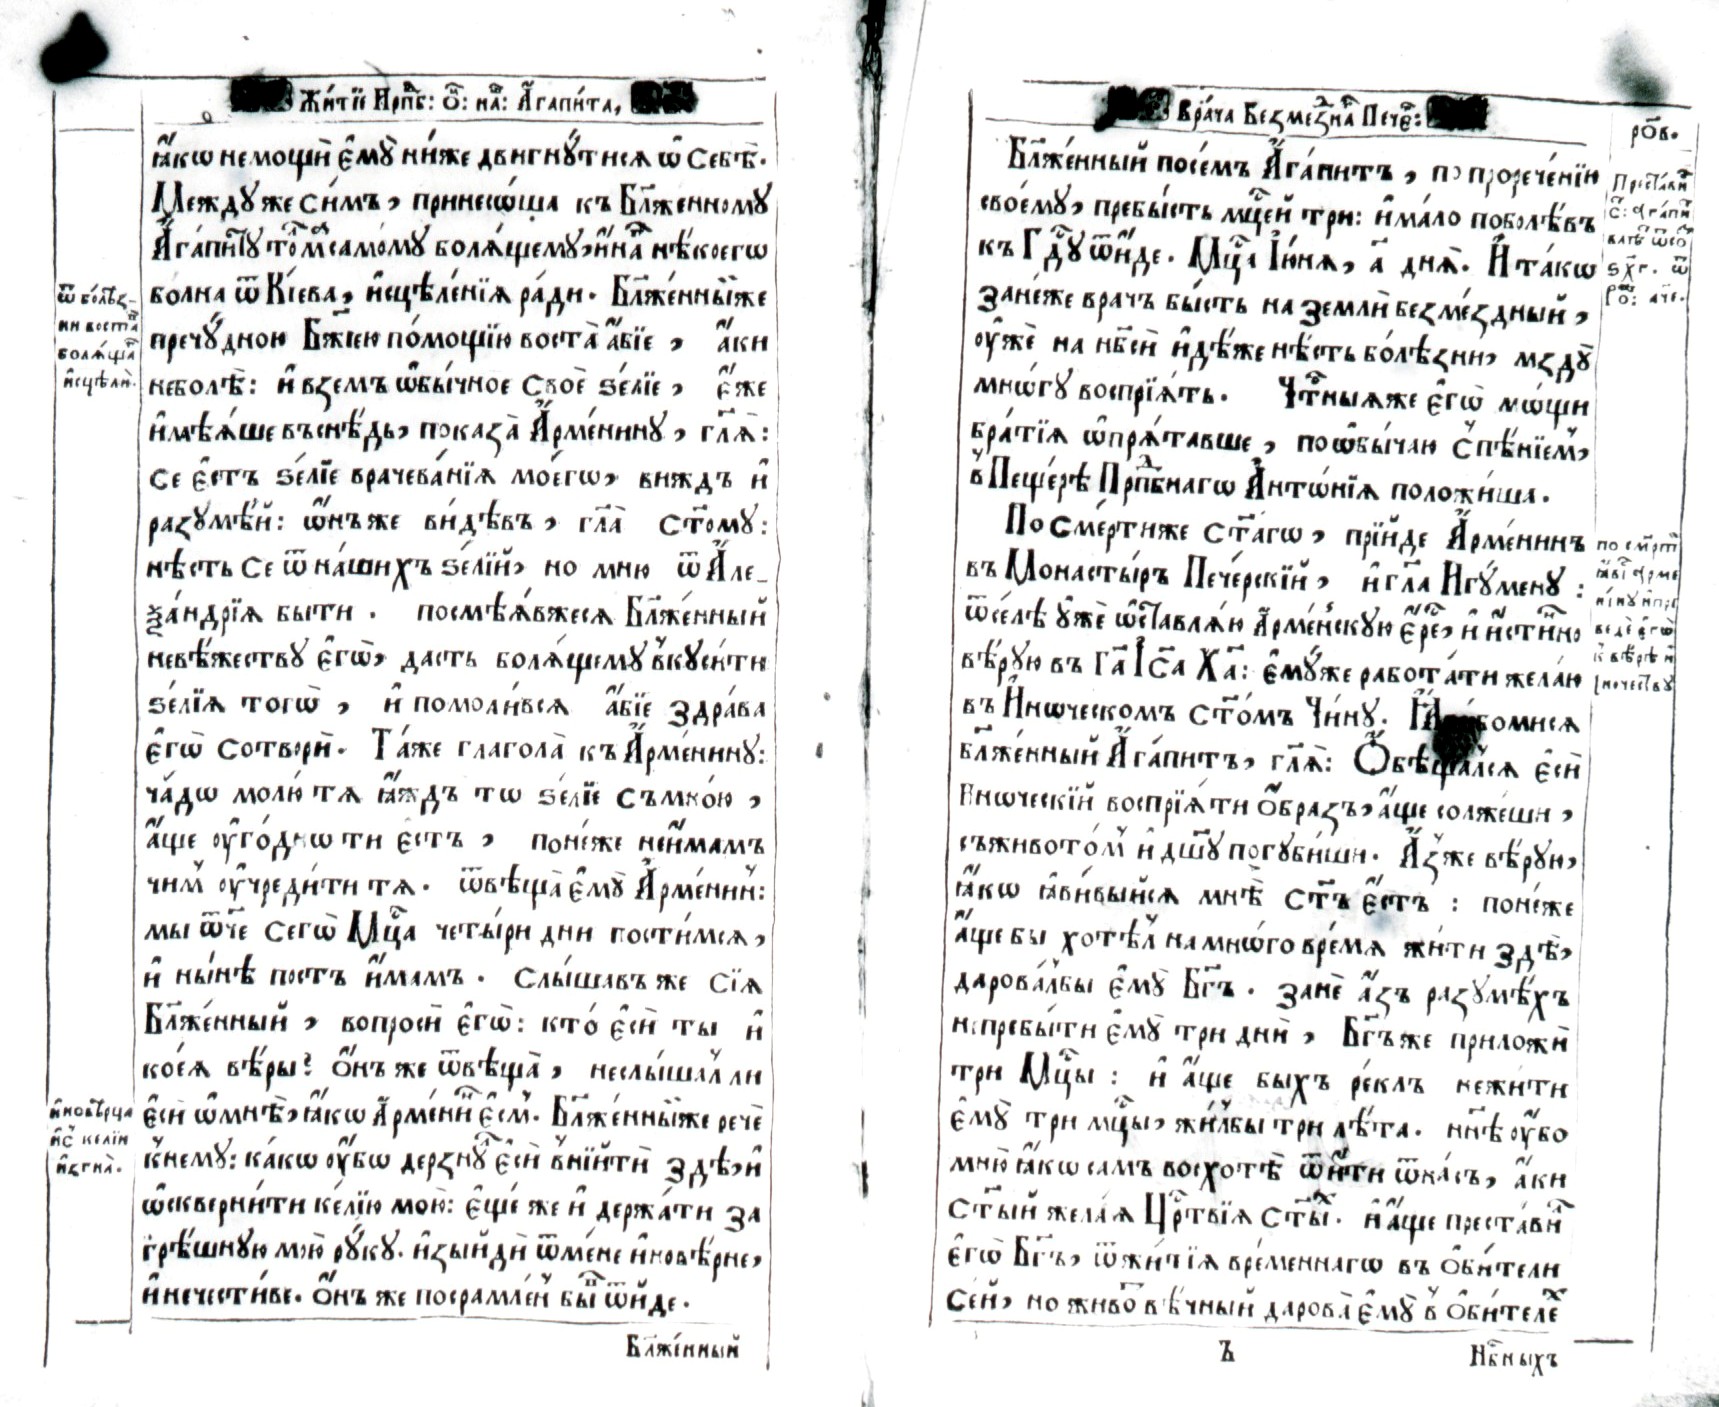 Житїе Прпⷣб: ѻ҃: на́: Агапі́та,
ꙗ҆́кѡ немощи̂ є҆мꙋ̀ ни́же двигнꙋ́тися ѿ Себѣ̀.
Междꙋ же си́мъ, принесо́ша къ Бл҃же́нномꙋ
А҆гапи́тꙋ то́мꙋ самомꙋ боля́щемꙋ, и҆на́ нѣ́коегѡ
бо́лна ѿ Кі́ева, и҆сцѣле́нїя ра́ди. Бл҃же́нный же
пречꙋ́дною Бж҃їею по́мощїю воста̀ а҆́бїе, а҆́ки
неболѣ̀: и҆ взе́мъ ѡ҆бы́чное Своѐ ѕе́лїе, є҆́же
и҆мѣ́яше въ снѣ́дь, показа̀ А҆рме́нинꙋ, гл҃я:
се є҆́стъ ѕе́лїе врачева́нїя мое́гѡ, виждъ и҆
разꙋмѣ́й: ѡ҆́нъ же ви́дѣвъ, гл҃а ст҃омꙋ:
нѣ́сть се ѿ на́шихъ ѕе́лїй, но мню ѿ А҆ле_
ѯа́ндрїя быти. посмѣя́вжеся Бл҃же́нный
невѣ́жествꙋ є҆гѡ̀, дасть боля́щемꙋ вкꙋси́ти
ѕе́лїя тогѡ̀, и҆ помоли́вся а҆́бїе здра́ва
є҆гѡ̀ сотвори̂. Та́же глагола̀ къ А҆рме́нинꙋ:
ча́дѡ молю́ тя ꙗ҆́ждъ тѡ ѕе́лїе съмно́ю,
а҆́ще ᲂу҆го́днѡ ти є҆́стъ, поне́же не и҆́мамъ
чим̾ ᲂу҆чреди́ти тя. ѿвѣща̀ є҆мꙋ̀ А҆рме́нин̾:
мы ѿч҃е сегѡ̀ Мцⷭ҇а четы́ри дни пости́мся,
и҆ ны́нѣ постъ и҆́мамъ. Слы́шавъ же сїя
Бл҃же́нный, вопроси̂ є҆гѡ̀: кто́ є҆си̂ ты и҆
ко́ея вѣ́ры? О҆́нъ же ѿвѣща̀, неслы́шал̾ ли
є҆си̂ ѡ҆мнѣ̀, ꙗ҆́кѡ А҆рме́нин є҆́см̾. Бл҃же́нный же речѐ
к̾немꙋ: ка́кѡ ᲂу҆́бѡ дерзнꙋ́л є҆си̂ в̾ни́йти̂ здѣ̀, и҆
ѡ҆скверни́ти ке́лїю мою̀: є҆ще́ же и҆ держа́ти за
грѣ́шнꙋю мою̀ рꙋ́кꙋ. и҆зы́йди̂ ѿ ме́не и҆новѣ́рне,
и҆ нечести́ве. О҆́нъ же посрамле́н̾ бы́в ѿи́де.
Бл҃же́нный
ѿ болѣз-
ни воста̀
боля́ща
и҆сцѣли̂.
и҆новѣ́рца
и҆с̾ келїи
и҆згна̀.
Врача̀ Безмезⷣна Пече́р:
ро҃в.
Бл҃же́нный посе́мъ А҆гапи́тъ, по прорече́нїю
свое́мꙋ, пребы́сть мцⷭ҇ей три: и҆ ма́ло поболѣ́въ
къ Гдⷭ҇ꙋ ѿи́де. Мцⷭ҇а І҆ю́ня, а҃ дня̀. И҆ та́кѡ
зане́же врачъ бы́сть на земли̂ безме́здный,
ᲂу҆жѐ на нб҃си̂ и҆дѣ́же нѣ́сть бо́лѣзни, мздꙋ̀
мнѡ́гꙋ воспрїя́ть. Чтⷭ҇ныя же є҆гѡ̀ мѡ́щи
бра́тїя ѡ҆пря́тавше, по ѡ҆бы́чаю с̾ пѣ́нїем̾,
в̾ Пеще́рѣ Прпⷣбнагѡ А҆нтѡ́нїя положи́ша.
По сме́рти же ст҃а́гѡ, прїи́де А҆рме́нинъ
въ Монасты́ръ Пече́рскїй, и҆ гл҃а И҆гꙋ́менꙋ:
ѿсе́лѣ ᲂу҆жѐ ѡ҆ставля́ю А҆рме́нскꙋю є҆́ресь, и҆ и҆́стинно
вѣ́рꙋю въ Гⷭ҇а І҆и҃са Хⷭ҇а: є҆мꙋ́же рабо́тати жела́ю
въ И҆́нѡческомъ ст҃о́мъ Чи́нꙋ.
бл҃же́нный А҆гапи́тъ, гл҃я: Ѻ҆бѣща́лся є҆си̂
И҆нѡческїй воспрїя́ти О҆́бразъ, а҆́ще солже́ши,
съживото́м̾ и҆ дш҃ꙋ погꙋби́ши. А҆́з̾же вѣ́рꙋю,
ꙗ҆́кѡ ꙗ҆ви́выйся мнѣ̀ ст҃ъ є҆́стъ: поне́же
а҆́ще бы хотѣ́л̾ на мнѡ́го вре́мя жи́ти здѣ̀,
дарова́лбы є҆мꙋ̀ Бг҃ъ. занѐ а҆́зъ разꙋмѣ́хъ
непребы́ти є҆мꙋ̀ три дни̂, Бг҃ъ же приложи̂
три Мцⷭ҇ы: и҆ а҆́ще быхъ ре́клъ нежи́ти
є҆мꙋ̀ три мцⷭ҇ы, жи́лбы три лѣ́та. нн҃ѣ ᲂу҆́бо
мню̀ ꙗ҆́кѡ самъ восхотѣ̀ ѿи́ти ѿна́съ, а҆́ки
ст҃ы́й жела́я Црⷭ҇твїя ст҃ы́х. и҆ а҆́ще преста́ви
є҆гѡ̀ Бг҃ъ, ѿ жи́тїя вре́меннагѡ въ О҆би́тели
се́й, но живо́т вѣ́чный дарова̀ є҆мꙋ̀ в̾ О҆би́теле́х
Ъ
Нбⷭ҇ныхъ
Преста́ви
по сме́рти